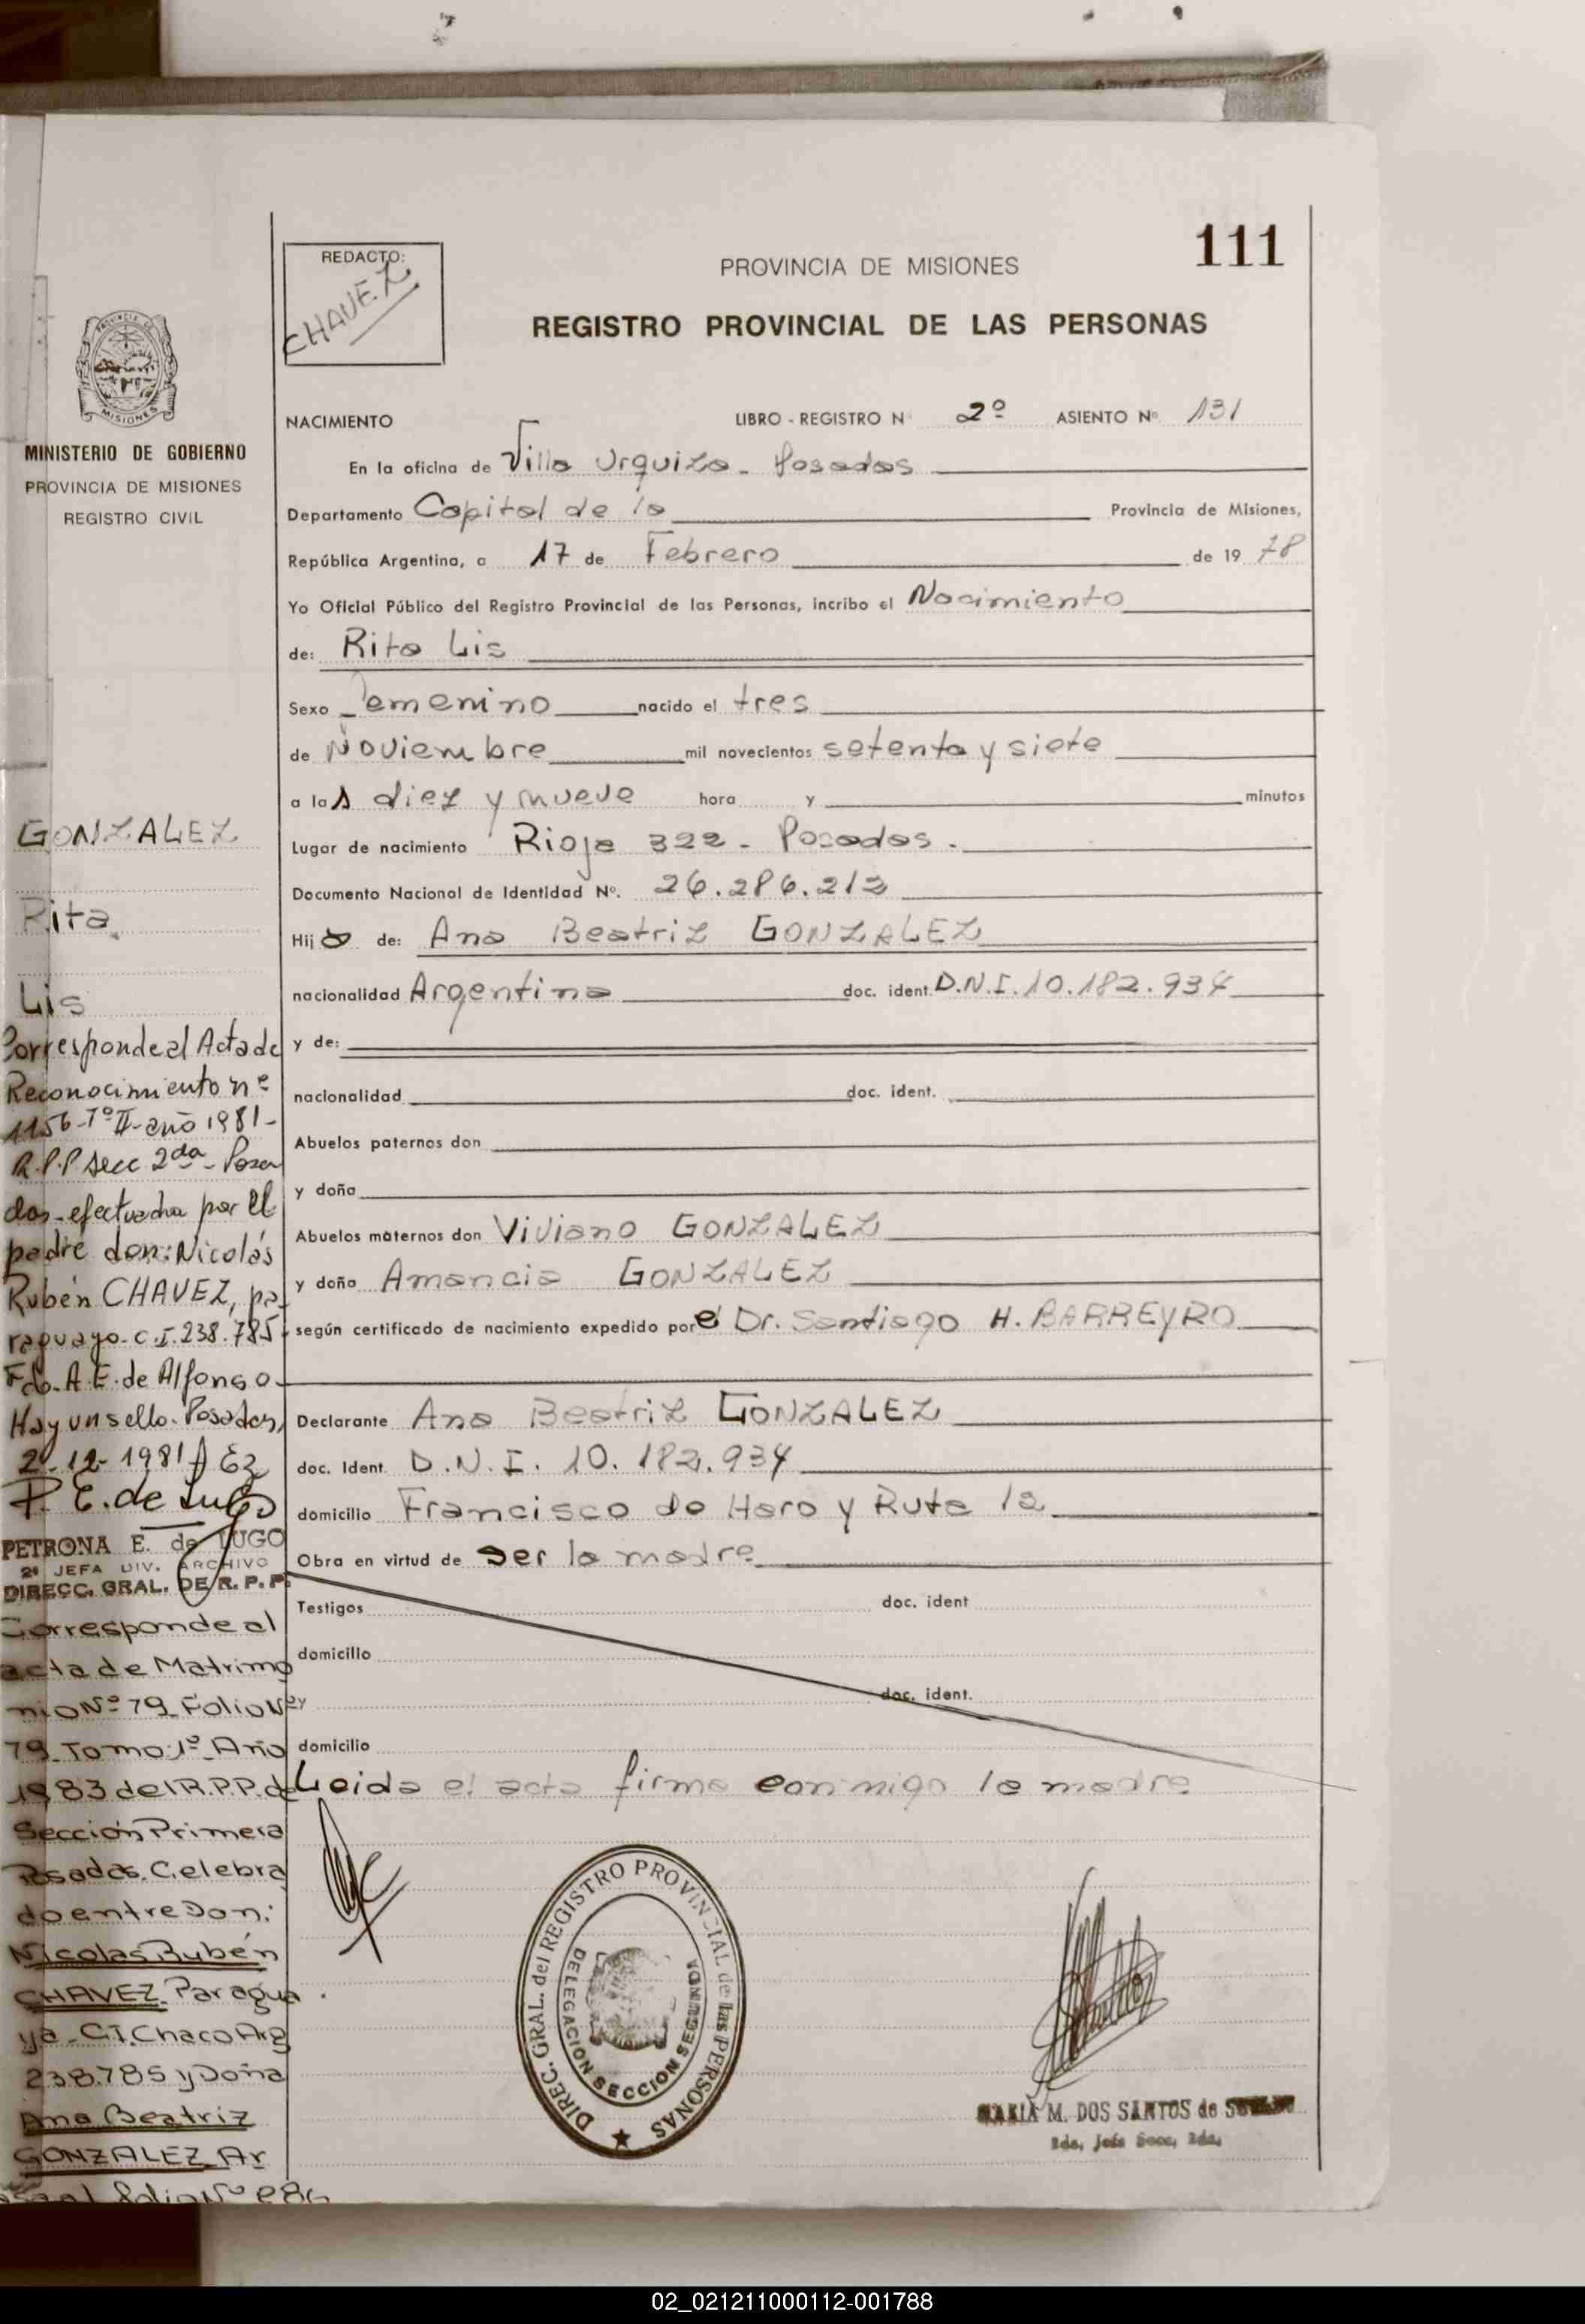 111
REDACTO:
CHAVEZ
PROVINCIA DE MISIONES
REGISTRO PROVINCIAL DE LAS PERSONAS
PROVINCIA DE
MISIONES
MINISTERIO DE GOBIERNO
PROVINCIA DE MISIONES
REGISTRO CIVIL
NACIMIENTO LIBRO - REGISTRO Nº 2º ASIENTO Nº 131
En la oficina de Villa Urquiza - Posadas
Departamento Capital de la Provincia de Misiones,
República Argentina, a 17 de Febrero de 19 78
Yo Oficial Público del Registro Provincial de las Personas, incribo el Nacimiento
de: Rita Lis
Sexo Femenino nacido el tres
de Noviembre mil novecientos setenta y siete
a las diez y nueve hora y minutos
Lugar de nacimiento Rioja 322 - Posadas.
Documento Nacional de Identidad Nº. 26.286.213
Hija de: Ana Beatriz GONZALEZ
nacionalidad Argentina doc. ident. D.N.I. 10.182.934
y de:
nacionalidad doc. ident.
Abuelos paternos don
y doña
Abuelos maternos don Viviano GONZALEZ
y doña Amancia GONZALEZ
según certificado de nacimiento expedido por el Dr. Santiago H. BARREYRO
Declarante Ana Beatriz GONZALEZ
doc. Ident. D.N.I. 10.182.934
domicilio Francisco de Haro y Ruta 12
Obra en virtud de ser la madre
Testigos doc. ident
domicilio
y doc. ident.
domicilio
Leida el acta firma conmigo la madre
DIREC. GRAL. del REGISTRO PROVINCIAL de las PERSONAS
DELEGACION SECCION SEGUNDA
MARIA M. DOS SANTOS de
2da. Jefa Secc. 2da.
GONZALEZ
Rita
Lis
Corresponde al Acta de
Reconocimiento nº
1156-Tº II-año 1981-
R.P.P secc 2da - Posa
das-efectuada por el
padre don: Nicolás
Rubén CHAVEZ, pa-
raguayo-C.I. 238.785-
Fdo. A.E. de Alfonso
Hay un sello. Posadas,
2-12-1981
P. E. de Lugo
PETRONA E. de LUGO
2ª JEFA DIV. ARCHIVO
DIRECC. GRAL. DE R. P. P.
Corresponde al
acta de Matrimo
nio Nº 79 Folio Nº
79 Tomo:1º Año
1983 del R.P.P. de
Sección Primera
Posadas. Celebra
do entre Don:
Nicolas Rubén
CHAVEZ. Paragua
ya - C.I. Chaco Arg
238.785 y Doña
Ana Beatriz
GONZALEZ Ar
folio Nº
02_021211000112-001788